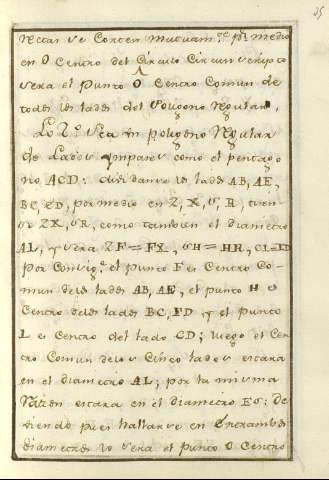 35
rectas se corten mutuam.te p.r medio
en O centro del Círculo Circunscripto
sera el punto O Centro Comun de
todos los lados del Poligono Regular.
Lo 2.o Sea un poligono Regular
de Lados Impares como el pentago
no ACD: dividanse los lados AB, AE,
BC, CD, por medio en Z, X, G, R, tiren
se ZX, GR, como tambien el diametro
AL; y sera ZF = FX, GH = HR, CL = LD
por Consig.te el punto F es Centro Co-
mun de los lados AB, AE, el punto H es
Centro de los lados BC, ED y el punto
L es Centro del lado CD; luego el Cen
tro Comun de los Cinco lados estara
en el diametro AL; por la misma
Razon estara en el diametro EG: De
viendo pues hallarse en Entrambos
diametros lo sera el punto O Centro